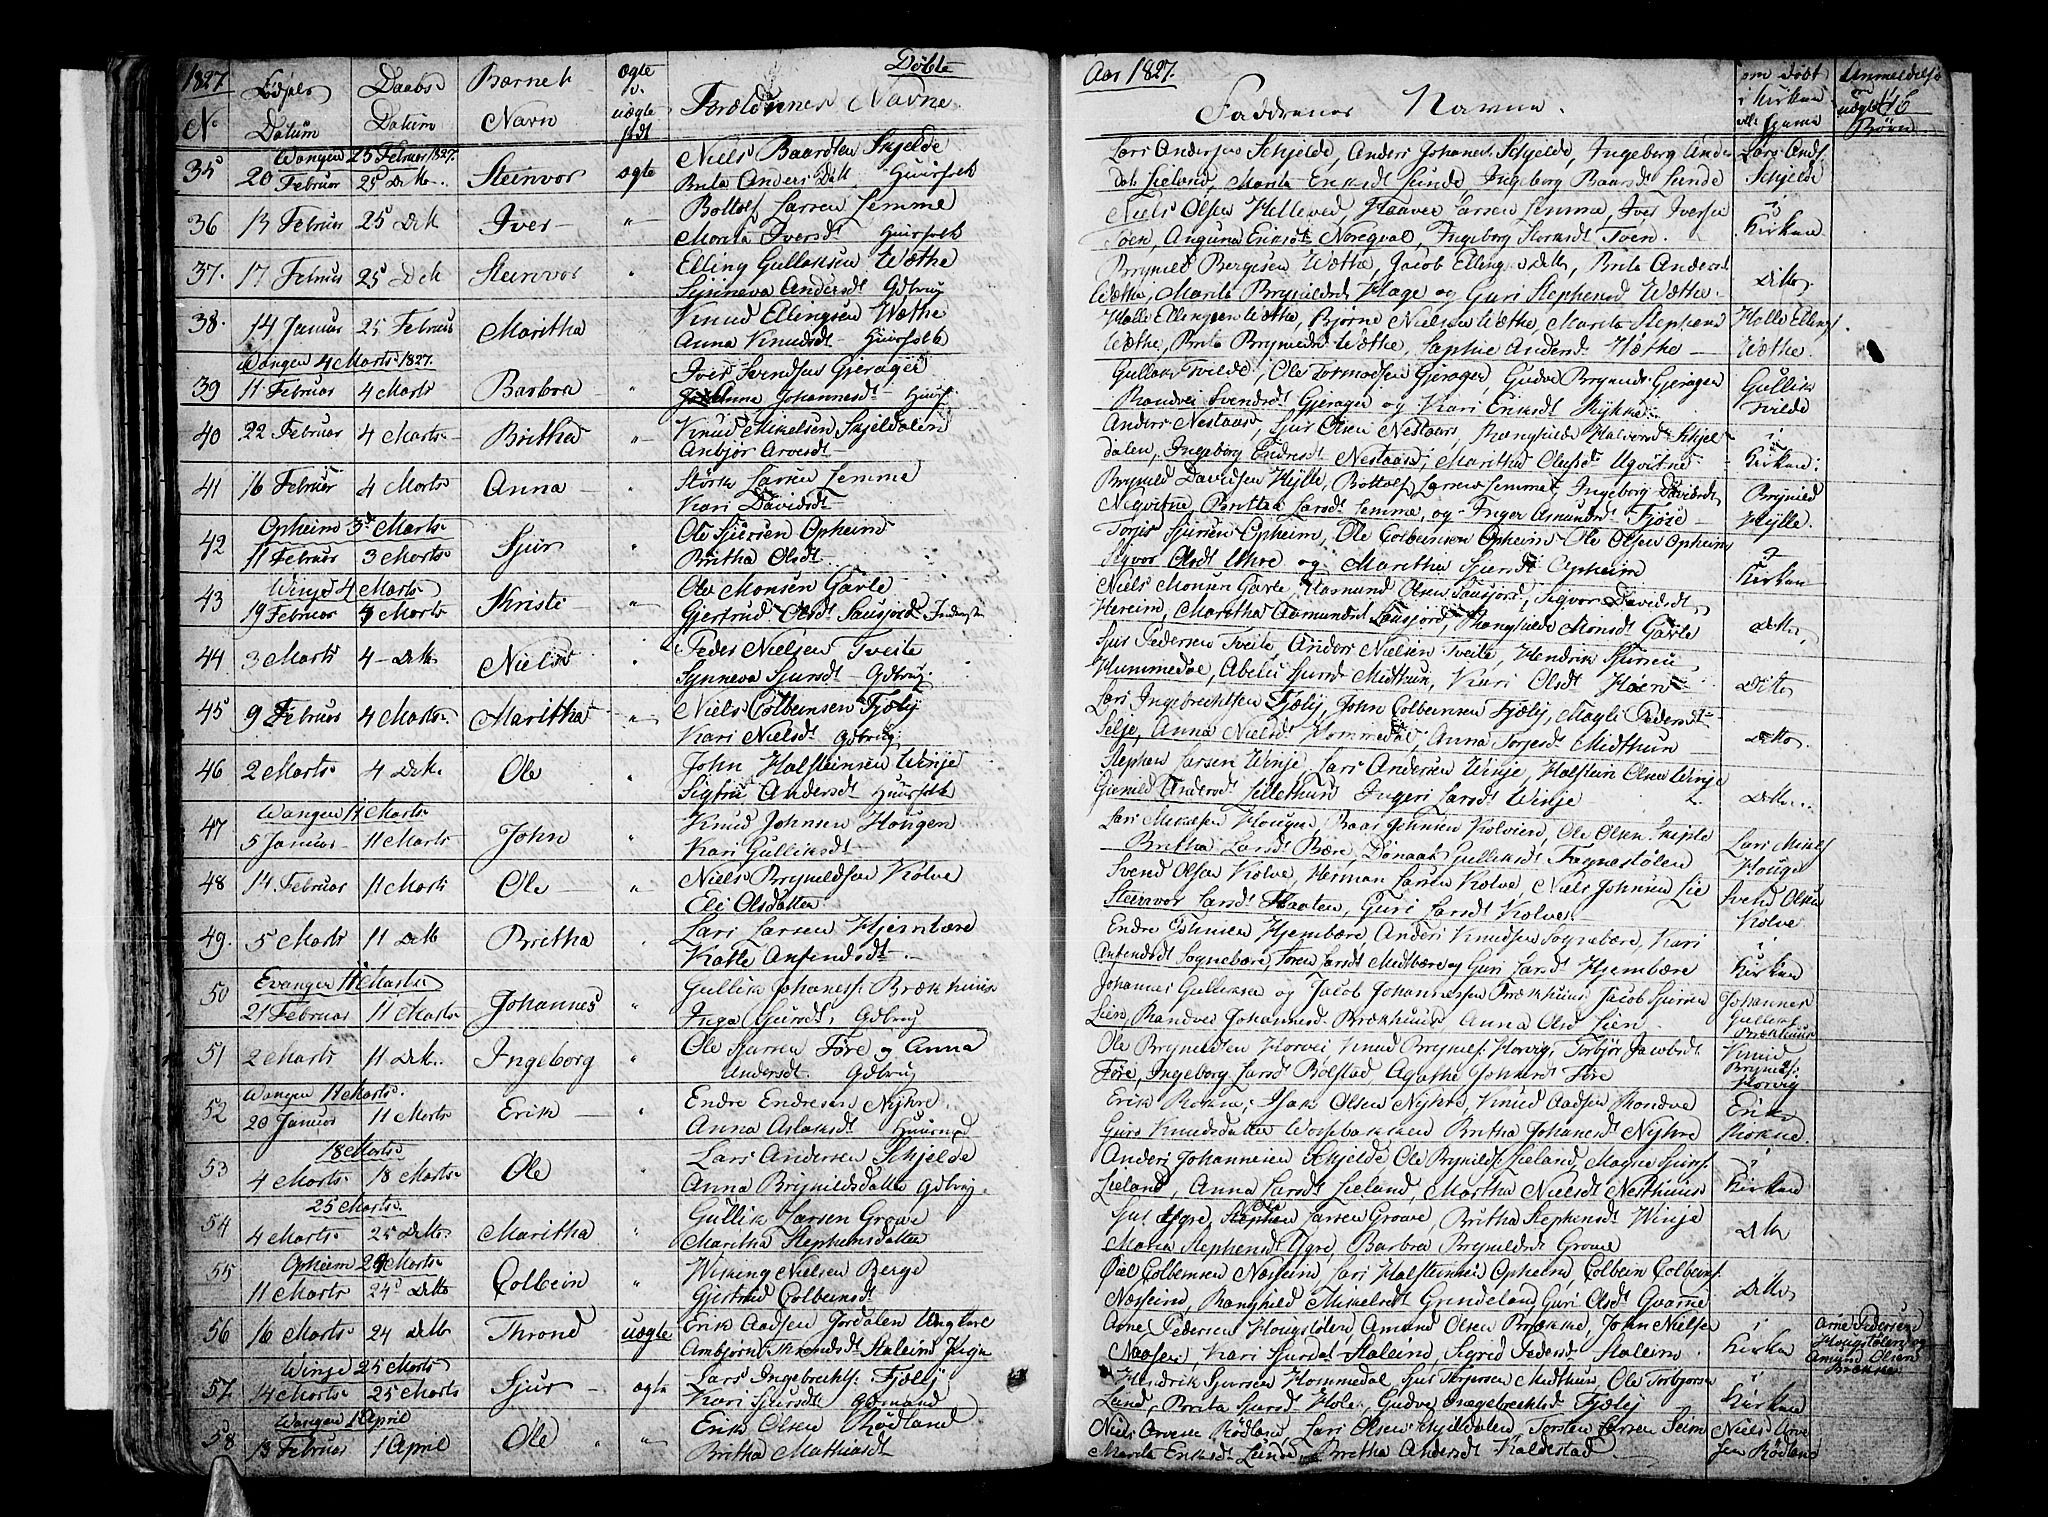 1827 Døbte
Fødsels Daabs Barnets ægte
No Datum Datum Navn uægte Forældrenes Navne
Wangen 25 Februar 1827.
35 20 Februar 25 Ditto Steinvor ægte Niels Baardsen Skjelde
Brita Andersd Huusfolk
36 13 Februar 25 Dito Iver Bottolf Larsen Lemme
Marita Iversdt Huusfolk
37. 17 Februar 25 Dito Steinvor Elling Gullaksen Wæthe
Synneva Andersdt Gdbrug
38. 14 Januar 25 Februar Maritha Knud Ellingsen Wæthe
Anna Knudsdt Huusfolk
Wangen 4 Marts 1827.
39 11 Februar 4 Marts Barbra Iver Svendsen Gjerager
Anna Johannesdt Huusf.
40 22 Februar 4 Marts Britha Knud Mikelsen Skjeldalen
Anbjør Arvesdt
41 16 Februar 4 Marts Anna Størk Larsen Lemme
Kari Davidsdt
Opheim 3 Marts
42 11 Februar 3 Marts Sjur Ole Sjursen Opheim
Britha Olsdt
Winje 4 Marts
43 19 Februar 4 Marts Christi Ole Monsen Gavle
Gjertrud Olsdt Sausjord
44 3 Marts 4 Ditto Niels Peder Nielsen Tveite
Synneva Sjursdt Gdbrug
45 9 Februar 4 Marts Maritha Niels Colbeinsen Fjæly
Kari Nielsdt Gdbrug
46 2 Marts 4 Dito Ole John Halsteinsen Winje
Sigtru Andersdt Huusfolk
Wangen 11 Marts
47 5 Januar 11 Marts John Knud Johnsen Hougen
Kari Gulliksdt
48 14 Februar 11 Marts Ole Niels Brynildsen Kolve
Eli Olsdatter
49. 5 Marts 11 Ditto Britha Lars Larsen Hjembære
Kolle Anfendsdt
Evanger 11 Marts
50 21 Februar 11 Marts Johannes Gullik Johanesf. Brækhuus
Inga Sjursdt Gdbrug
51 2 Marts 11 Ditto Ingeborg Ole Sjursen Føre og Anna
Andersdt. Gdbrug
Wangen 11 Marts.
52 20 Januar 11 Marts Erik Endre Endresen Nyhre
Anna Aslaksdt Huusmd
18 Marts
53 4 Marts 18 Marts Ole Lars Andersen Skjelde
Anna Brynildsdatter Gdbrug.
25 Marts
54 4 Marts 25 Ditto Maritha Gullik Larsen Grove
Maritha Stephensdatter
Opheim 24 Marts
55 11 Marts 24 Ditto Colbein Wiking Nielsen Berge
Gjertrud Colbeinsdt
56 16 Marts 24 Ditto Thrond uægte Erik Aadsen Jordalen Ungkarl
Ambjørn Throndsdt Staleim Pige
Winje 25 Marts
57 14 Marts 25 Marts Sjur ægte Lars Ingebrechtsf. Fjæly
Kari Sjursdt Gdmand
Wangen 1 April
58 13 Februar 1 April Ole Erik Olsen Rødland
Britha Mathiasdt
Aar 1827.
Faddernes Navne. om døbt i Kirken eller hjemme Anmeldelse uægte Børn 46
Lars Andersen Schjelde, Anders Johanesf Schjelde, Ingeborg Anders Lars Andf
dt Lieland, Marita Eriksdt Lunde, Ingeborg Baarsdt Lunde Skjelde
Niels Olsen Helleved, Haaver Larsen Lemme, Iver Iversen i
Toen, Anguna Eriksdt Noreqval, Ingeborg Storksdt Toen. Kirken
Brynild Bergesen Wæthe, Jacob Ellingsen Ditto, Brita Andersdt
Wæthe, Marita Brynildsdt Hage og Guri Stephensd Wæthe. Ditto
Holle Ellingsen Wæthe, Bjørne Nielsen Wæthe, Marita Stephensd Holle Ellingf.
Wæthe, Brita Brynildsdt Wæthe, Saphie Andersdt Wæthe Wæthe.
Gullak Tvilde, Ole Tormodsen Gjerager, Gudve Brynildsd Gjerager Gullik
Randvei Svendsdt Gjerager og Kari Eriksdt Rykke Tvilde
Anders Nestaas, Sjur Olsen Nestaas, Rangfulde Halversdt Skjel i
dalen, Ingeborg Endresdt Nestaas, Maritha Olufsdt Ugvitne Kirken
Brynild Davidsen Hylle, Bottolf Larsen Lemme, Ingeborg Davidsdt Brynild
Negvitne, Britha Larsdt Lemme, og Inger Asmundsdt Fjøse Hylle
Torjes Sjursen Opheim, Ole Colbeinsen Opheim Ole Olsen Opheim i
Sigvor Olsdt Uhre og Maritha Sjursdt Opheim Kirken
Niels Monsen Gavle, Aamund Olsen Sausjord, Sigvor Davidsdt
Hereim, Maritha Aamundsd Sausjord, Rangfulde Monsdt Gavle Ditto
Sjur Pedersen Tveite, Anders Nielsen Tveite, Hendrik Sjursen
Hummedal, Abelu Sjursdt Midthun, Kari Olsdt Høen Ditto
Lars Ingebrechtsen Fjæly, John Colbeinsen Fjæly, Magli Pedersdt
Selje, Anna Nielsdt Hommedal, Anna Torjesdt Midthun Ditto
Stephen Larsen Winje, Lars Andersen Winje, Halstein Olsen Winje
Gunild Andersdt Lillethun Ingeri Larsdt Winje Ditto
Lars Mikelsen Hougen, Baar Johnsen Kolvien, Ole Olsen Skiple Lars Mikelf
Britha Larsdt Bære, Dønaat Gulliksdt Fagnastølen Hougen
Svend Olsen Kolve, Herman Larsen Kolve, Niels Johnsen Lie Svend Olsen
Steinvor Larsdt Flaaten, Guri Larsdt Kolve Kolve
Endre Johnsen Hjembære, Anders Knudsen Sognebære, Kari i
Anfensdt Sognebære, Toren Larsdt Midtbære og Guri Larsdt Hjembære Kirken
Johannes Gulliksen og Jacob Johannessen Brækhuus Jacob Sjursen Johannes
Lien, Randvei Johannesd. Brækhuus Anna Olsd Lien Gullikf Brækhuus
Ole Brynildsen Horvei Knud Brynilsf. Horvig, Torbjør Jacobsdt Knud
Føre, Ingeborg Larsdt Bolstad, Agathe Johnsdt Føre Brynilsf. Horvig
Erik Rokne, Isak Olsen Nyhre, Knud Aadsen Rondve Erik
Guro Knudsdatter Wossebakken Britha Johanesdt Nyhre Rokne
Anders Johannesen Skjelde Ole Brynildsf Lieland, Magne Sjursf. i
Lieland, Anna Larsdt Lieland, Martha Nielsdt Nesthuus Kirken
Sjur Ygre, Stephen Larsen Grove, Britha Stephensdt Winje
Maria Stephensdt Ygre, Barbra Brynildsdt Grove Ditto
Øiel Colbeinsen Næsseim, Lars Halsteinsen Opheim, Colbein Colbeinsf.
Næsseim, Ranghild Mikelsdt Grindeland Guri Olsdt Qvarme Ditto
Arne Pedersen Hougstølen Amund Olsen Brække, John Nielsen i Arne Pedersen
Naasen, Kari Sjursdt Staleim, Sigrid Pedersdt Staleim. Kirken Hougstølen og
Amund Olsen
Brække
Hendrik Sjursen Hommedal Sjur Torjersen Midthun Ole Torbjørsen i
Lund, Brita Sjursd Holen, Gudve Ingebrechtsd Fjæly Kirken
Niels Arvene Rødland Lars Olsen Skjeldalen, Torsten Larsen Seim Niels Arve
Marita Eriksdt Lunde, Britha Andersdt Kaldestad sen Rødland